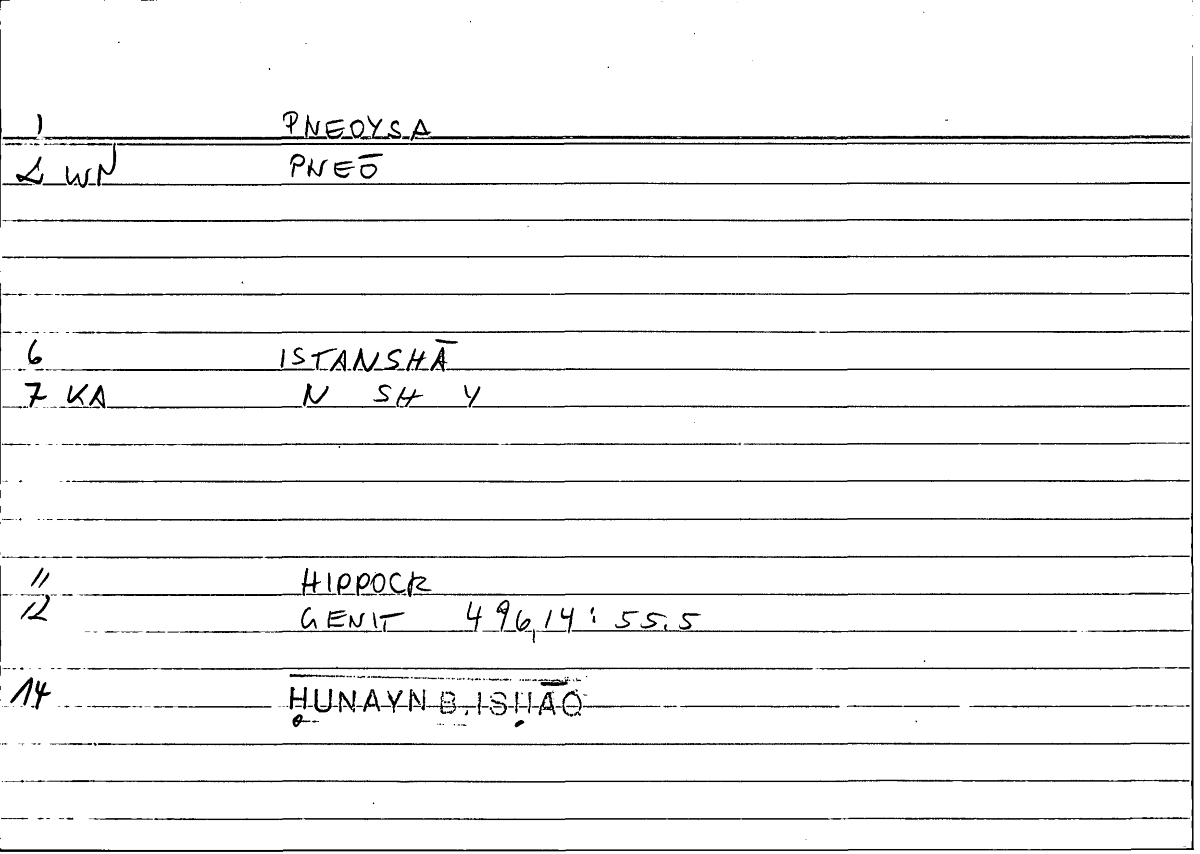 1 PNEOYSA
2 WN PNEŌ
6 ISTANSHĀ
7 KA N SH Y
11 HIPPOCR
12 GENIT 496,14: 55.5
14 ḤUNAYN B. ISḤĀQ